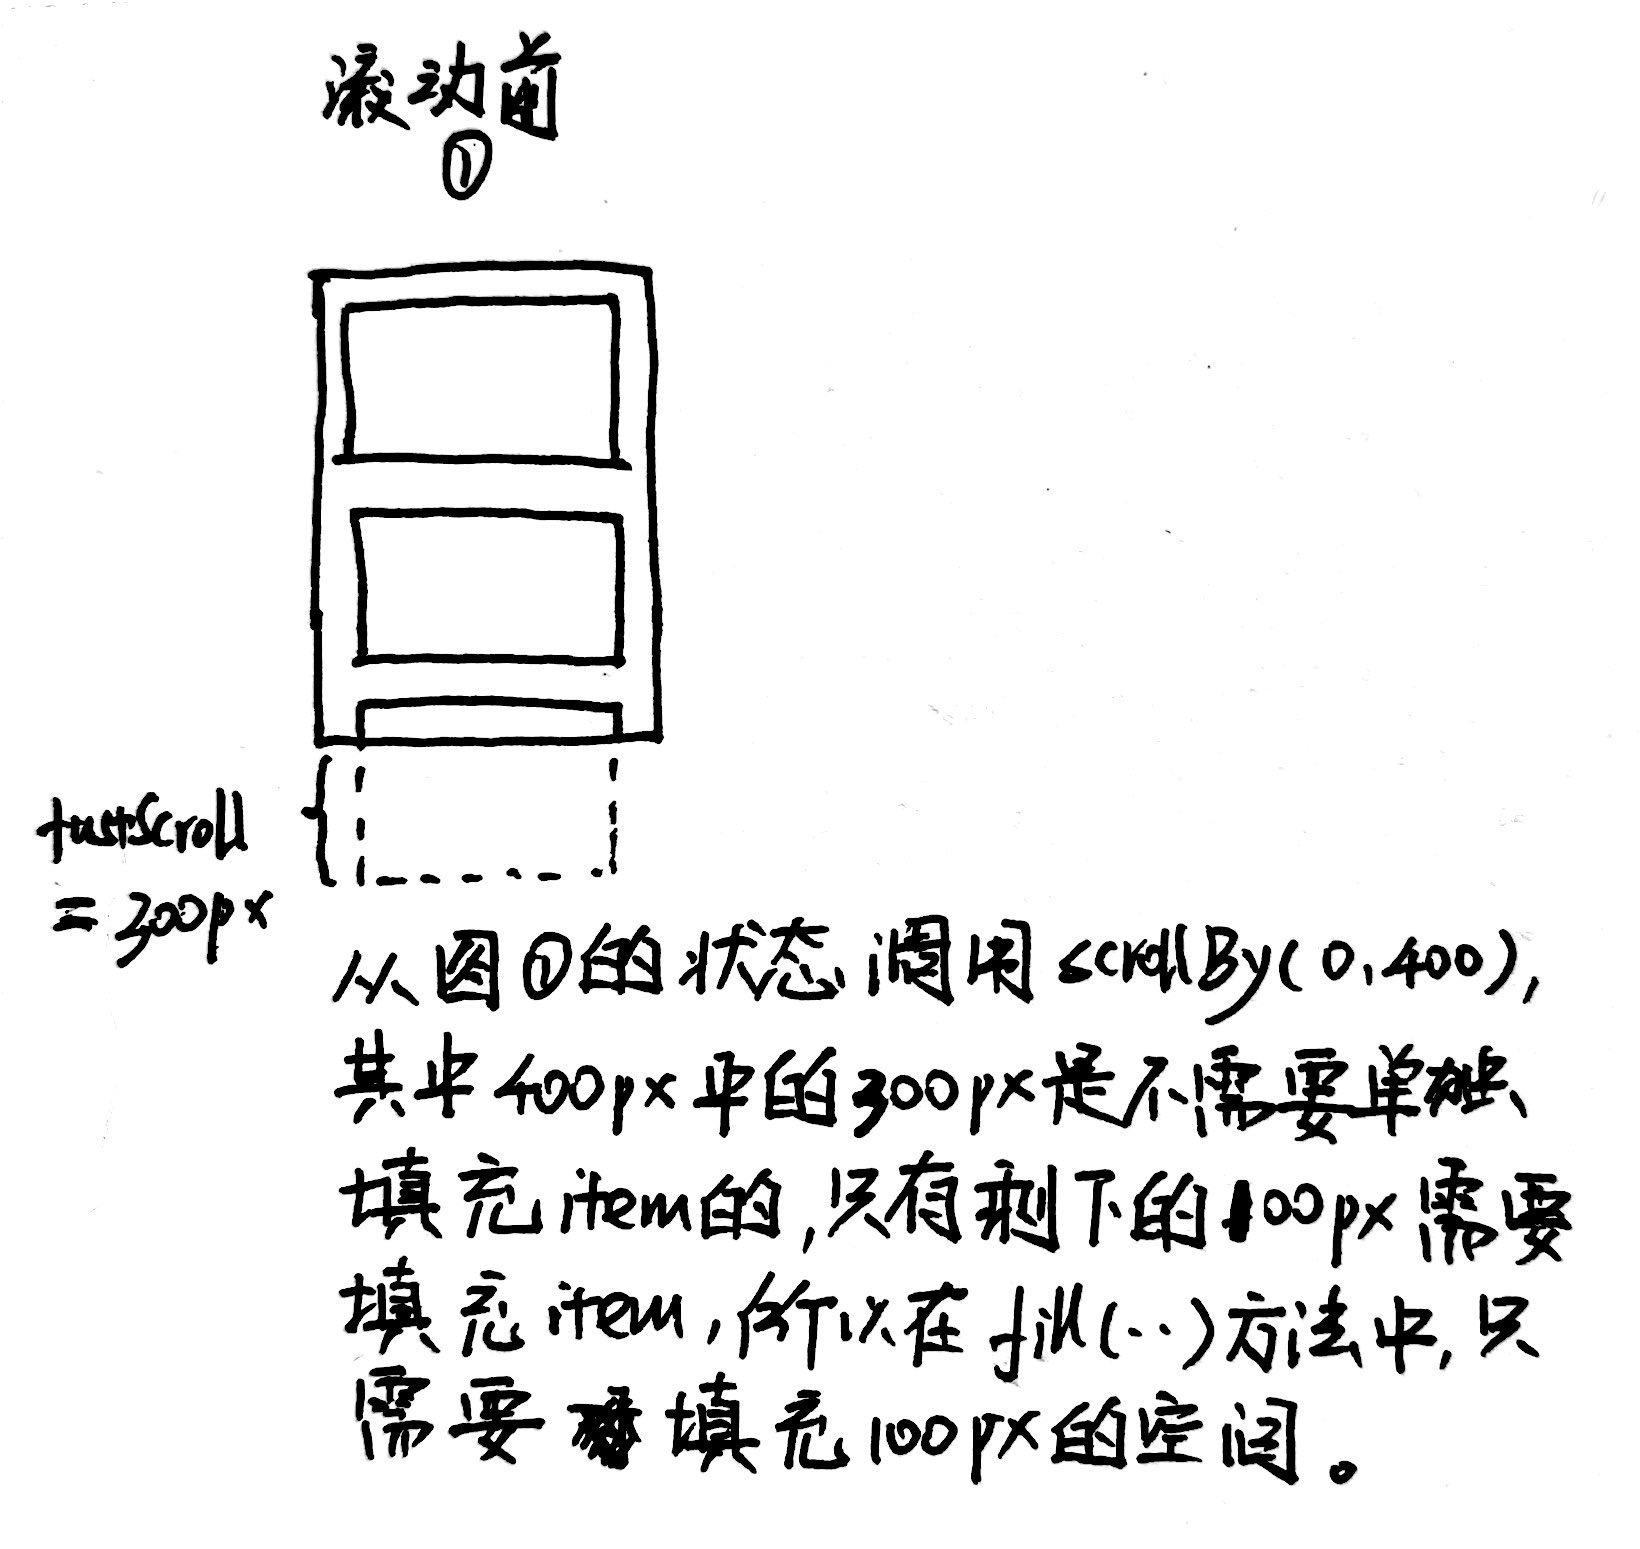 滚动前
①
fastScroll
= 300px
从图①的状态调用scrollBy(0,400),
其中400px中的300px是不需要单独
填充item的,只有剩下的100px需要
填充item,所以在fill(..)方法中,只
需要填充100px的空间。